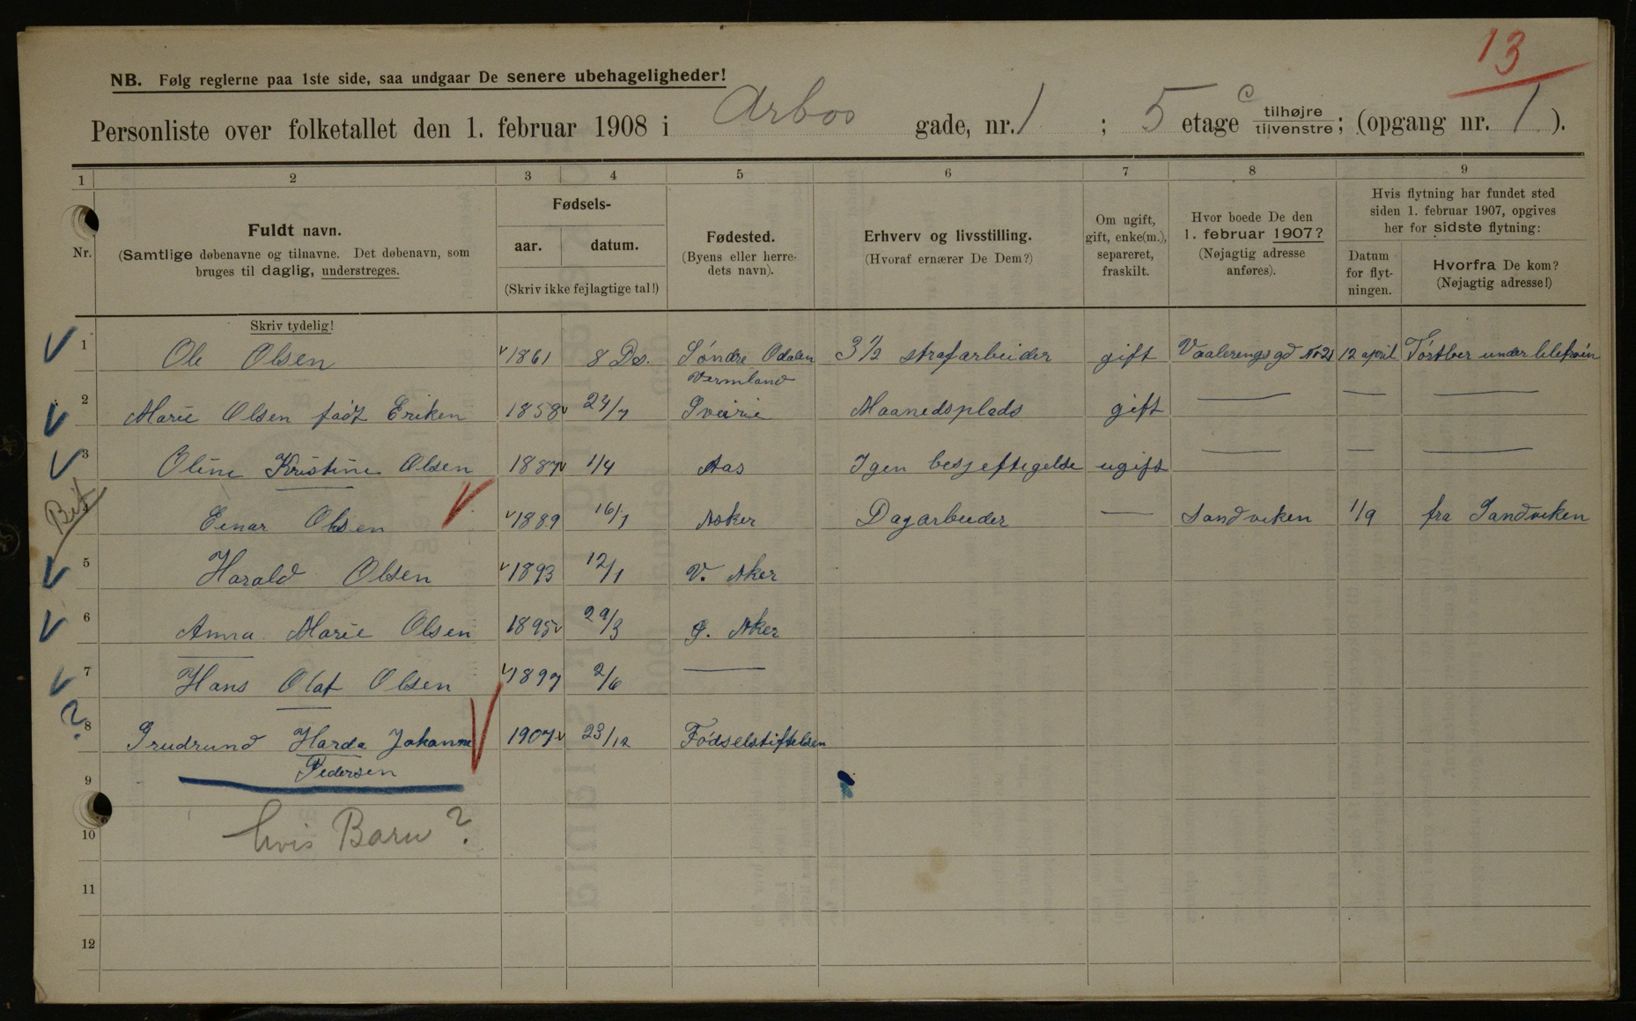 13
NB. Følg reglerne paa 1ste side, saa undgaar De senere ubehageligheder!
Personliste over folketallet den 1. februar 1908 i Arbos gade, nr. 1 ; 5 etage c tilhøjre tilvenstre; (opgang nr. 1 ).
1 2 3 4 5 6 7 8 9
Nr. Fuldt navn. (Samtlige døbenavne og tilnavne. Det døbenavn, som bruges til daglig, understreges.
Skriv tydelig!
Fødsels- aar. datum. (Skriv ikke fejlagtige tal!)
Fødested. (Byens eller herredets navn).
Erhverv og livsstilling. (Hvoraf ernærer De Dem?)
Om ugift, gift, enke(m.), separeret, fraskilt.
Hvor boede De den 1. februar 1907? (Nøjagtig adresse anføres).
Hvis flytning har fundet sted siden 1. februar 1907, opgives her for sidste flytning:
Datum for flytningen.
Hvorfra De kom? (Nøjagtig adresse!)
1 Ole Olsen 1861 8 Des. Søndre Odalen 3½ strafarbeider gift Vaalerengs gd No 21 12 april
2 Marie Olsen født Eriken 1858 24/7 Vermland Sverie Maanedsplads gift — — —
3 Oline Kristine Olsen 1887 1/4 Aas Igen besjeftigelse ugift — — —
Einar Olsen 1889 16/1 Asker Dagarbeider — Sandviken 1/9 fra Sandviken
5 Harald Olsen 1893 12/1 V. Aker
6 Anna Marie Olsen 1895 29/3 Ø. Aker
7 Hans Olaf Olsen 1897 2/6 —
8 Harda Johanne Pedersen 1907 23/12 Fødselstiftelsen
?
9
10 hvis Barn?
11
12